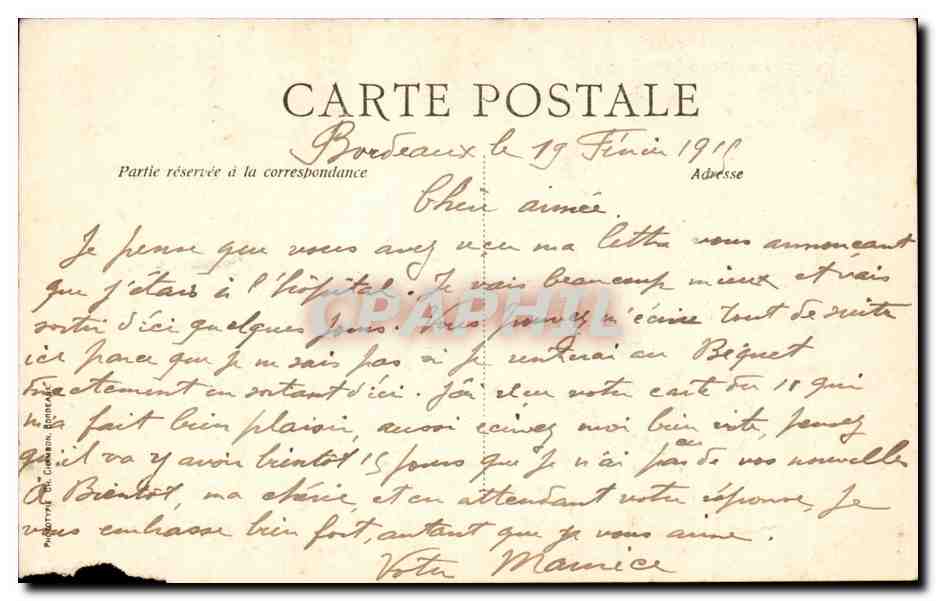 CARTE POSTALE
Bordeaux le 19 Février 1915
Partie réservée à la correspondance
Adresse
Chère aimée.
Je pense que vous avez reçu ma lettre vous annonçant
que j'étais à l'hôpital. Je vais beaucoup mieux et vais
sortir d'ici quelques jours. Vous pouvez m'écrire tout de suite
ici parce que je ne sais pas si je rentrerai au Béquet
directement en sortant d'ici. J'ai reçu votre carte du 18 qui
m'a fait bien plaisir, aussi écrivez moi bien vite, pensez
qu'il va y avoir bientôt 15 jours que je n'ai pas eu de vos nouvelles
A Bientôt, ma chérie, et en attendant votre réponse, je
vous embrasse bien fort, autant que je vous aime.
Votre Maurice
PHOTOTYPIE CH. CHAMBON, BORDEAUX
CPAPHIL